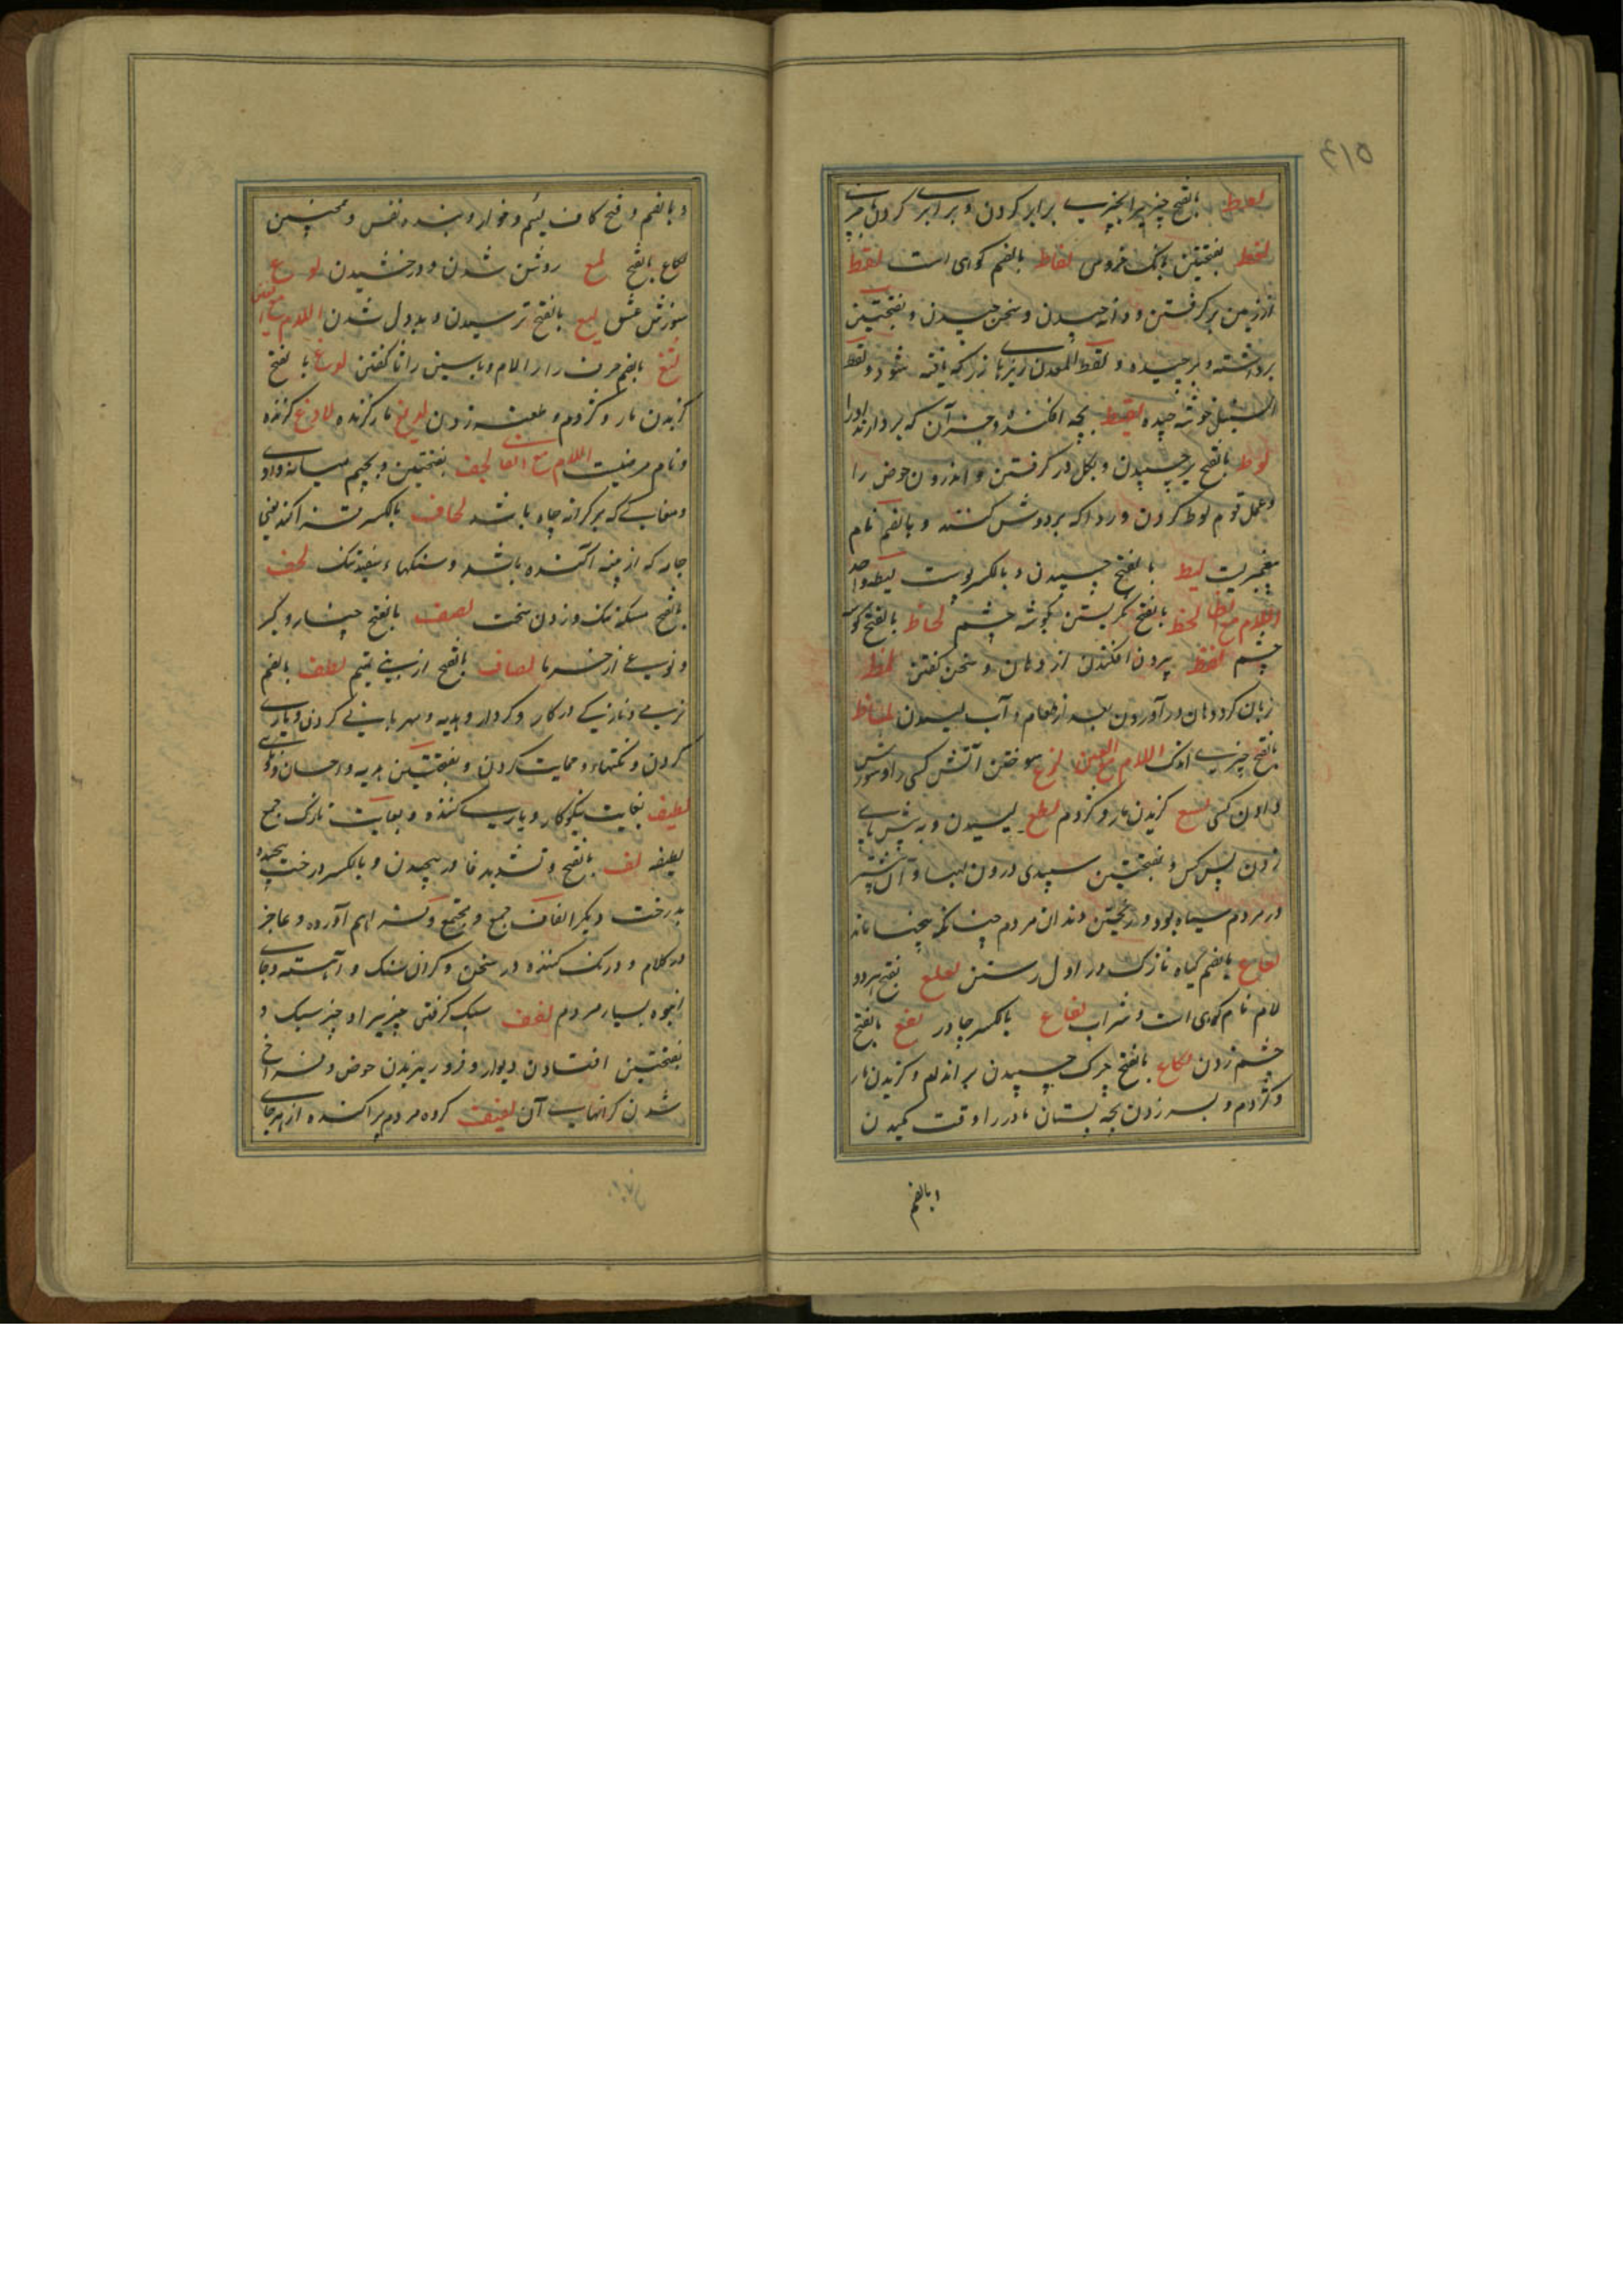 لعط بالفتح چیزیرا بچیزی برابر کردن و برابری کردن
لغط بفتحتین بانک خروس لغاط بالضم کوهی است لقط
از زمین برگرفتن و دانه چیدن و سخن چیدن و بفتحتین
برداشته و برچیده و لقط المعدن زیزهای زر که یافته شود و لقط
السنبل خوشه چیده لقیط بچه افکنده و جز آن که بردارند اورا
لوط بالفتح برچسپیدن و بکل در گرفتن و اندرون حوض را
و عمل قوم لوط کردن و ردا که بر دوش کنند و بالضم نام
پیغمبریست لیط بالفتح چسپیدن و بالکسر پوست لیطه واحد
اللام مع الظا لحظ بالفتح نگریستن بگوشه چشم لحاظ بالفتح گوشه
چشم لفظ بیرون افکندن از دهان و سخن گفتن لمظ
زبان گرد دهان در آوردن بعد از طعام و آب لیسیدن لماظ
بالفتح چیزی اندک اللام مع العین لذع سوختن آتش کسی را و سوزش
دادن کسی لسع گزیدن مار و کژدم لطع لیسیدن و به پیش پای
زدن پس کس و بفتحتین سپیدی درون لبها و آن بیشتر
در مردم سیاه بود و ریختن دندان مردم چنانکه بیخها ماند
لعاع بالضم گیاه نازک در اول رستن لعلع بفتح هر دو
لام نام کوهی است و شراب لفاع بالکسر چادر لقع بالفتح
چشم زدن لکاع بالفتح چرک چسپیدن بر اندام و گزیدن مار
و کژدم و بسر زدن بچه پستان مادر را وقت مکیدن
و بالضم
و بالضم و فتح کاف لئیم و خوار و بنده نفس و همچنین
لکاع بالفتح لمع روشن شدن و درخشیدن لوع
سوزش عشق لیع بالفتح ترسیدن و بد دل شدن اللام مع الغین
لثغ بالضم حرف را را لام و یا سین را ثا گفتن لدغ بالفتح
گزیدن مار و کژدم و طعنه زدن لدیغ مار گزیده لادغ گزنده
و نام مرضیست اللام مع الفا لجف بفتحتین و بجیم میانه وادی
و مغاکی که بر کرانه چاه باشد لحاف بالکسر قزاکند یعنی
جامه که از پنبه آکنده باشد و سنگهاء سفید تنک لخف
بالفتح مسکه تنک و زدن سخت لصف بالفتح خیار و کبر
و نوعی از خرما لصاف بالفتح از بنی تمیم لطف بالضم
نرمی و نازکی در کار و کردار و هدیه و مهربانی کردن و یاری
کردن و نکتها و حمایت کردن و بفتحتین هدیه و احسان
لطیف بغایت نیکوکار و یاری کننده و بغایت نازک جمع
لطیفه لف بالفتح و تشدید فا در پیچیدن و بالکسر درخت پیچیده
بدرخت دیگر الفاف جمع و مجتمع و فراهم آورده و عاجز
در کلام و درنگ کننده در سخن و گران سنک و آهسته و جای
انبوه بسیار مردم لقف سبک گرفتن چیزیرا و چیز سبک و
بفتحتین افتادن دیوار و فرو ریزیدن حوض و فراخ
شدن کرانهای آن لفیف گروه مردم پراکنده از هر جای